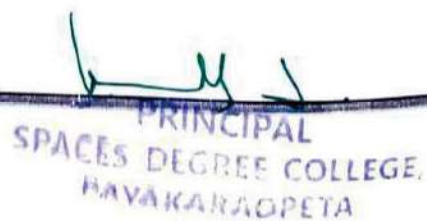 PRINCIPAL
SPACES DEGREE COLLEGE,
PAYAKARAOPETA